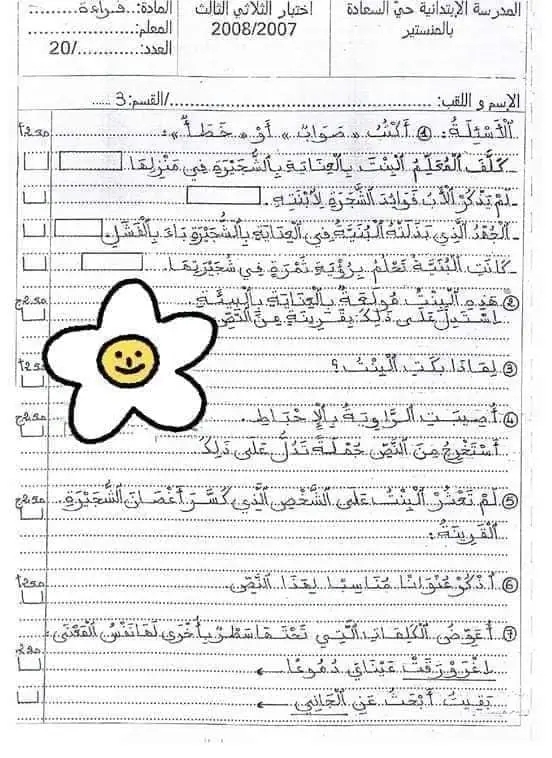 المدرسة الإبتدائية حيّ السعادة بالمنستير
اختبار الثلاثي الثالث
2008/2007
المادة:..قراءة.........
المعلم:...................
العدد:............/20
الإسم و اللقب:............................................/القسم:3 ......
الْأَسْئِلَةُ: ① أَكْتُبُ «صَوَابٌ» أَوْ «خَطَأٌ»: مع2أ
ـ كَلَّفَ الْمُعَلِّمُ الْبِنْتَ بِالْعِنَايَةِ بِالشُّجَيْرَةِ فِي مَنْزِلِهَا
ـ لَمْ يَذْكُرْ الْأَبُ فَوَائِدَ الشَّجَرَةِ لِابْنَتِهِ.
ـ الْجُهْدُ الَّذِي بَذَلَتْهُ الْبُنَيَّةُ فِي الْعِنَايَةِ بِالشُّجَيْرَةِ بَاءَ بِالْفَشَلِ.
ـ كَانَتِ الْبُنَيَّةُ تَحْلُمُ بِرُؤْيَةِ ثَمْرَةٍ فِي شُجَيْرَتِهَا.
② هَذِهِ الْبِنْتُ مُولَعَةٌ بِالْعِنَايَةِ بِالْبِيئَةِ. مع2ج
اسْتَدِلَّ عَلَى ذَلِكَ بِقَرِينَةٍ مِنَ النَّصِّ
③ لِمَاذَا بَكَتِ الْبِنْتُ؟ مع2أ
④ أُصِيبَتِ الرَّاوِيَةُ بِالْإِحْبَاطِ. مع2ج
أَسْتَخْرِجُ مِنَ النَّصِّ جُمْلَةً تَدُلُّ عَلَى ذَلِكَ
⑤ لَمْ تَعْثُرْ الْبِنْتُ عَلَى الشَّخْصِ الَّذِي كَسَّرَ أَغْصَانَ الشُّجَيْرَةِ مع2ج
الْقَرِينَةُ:
⑥ أَذْكُرُ عُنْوَانًا مُنَاسِبًا لِهَذَا النَّصِّ مع2أ
⑦ أُعَوِّضُ الْكَلِمَاتِ الَّتِي تَحْتَهَا سَطْرٌ بِأُخْرَى لَهَا نَفْسُ الْمَعْنَى:
اغْرَوْرَقَتْ عَيْنَايَ دُمُوعًا ← مع2
بَقِيتُ أَبْحَثُ عَنِ الْجَانِي ←